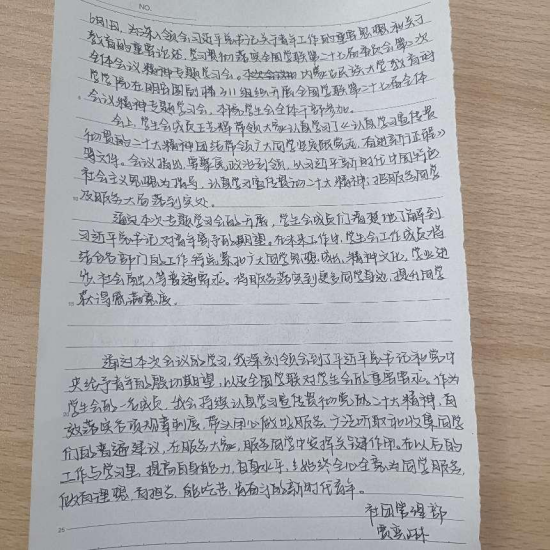 NO.
6月1日,为深入领会习近平总书记关于青年工作的重要思想和关于
教育的重要论述,学习贯彻落实全国学联第二十七届委员会第二次
全体会议精神专题学习会。内蒙古民族大学教育科学
学院在明治国 311 组织开展全国学联第二十七届全体
会议精神专题学习会。本院学生会全体干部参加。
会上,学生会成员带领大家认真学习了《认真学习宣传贯
彻党的二十大精神团结带领广大同学坚定跟党走、奋进新征程》
等文件。会议指出,要坚持政治引领,以习近平新时代中国特色
社会主义思想为指导,认真学习宣传贯彻二十大精神;把服务同学
及服务大局落到实处。
通过本次专题学习会的开展,学生会成员们着想地了解到
习近平总书记对青年寄予的期望。在未来工作中,学生会工作成员将
结合各部门的工作特点,聚和广大同学思想成长、精神文化、学业进
步、社会融入等普遍需求。将服务落实到更多同学身边,提升同学
获得感满意度。
通过本次会议的学习,我深刻领会到了习近平总书记和党中
央给予青年的殷切期望,以及全国学联对学生会的重要要求。作为
学生会的一名成员,我会持续认真学习宣传贯彻党的二十大精神,有
效落实各项规章制度,帮助同心做好服务,广泛听取和收集同学
们的普遍建议,在服务大家、服务同学中发挥关键作用。在以后的
工作与学习里,提高自身能力,自身水平,始终全心全意为同学服务,
做有理想、有担当、能吃苦、肯奋斗的新时代青年。
社团管理部
25